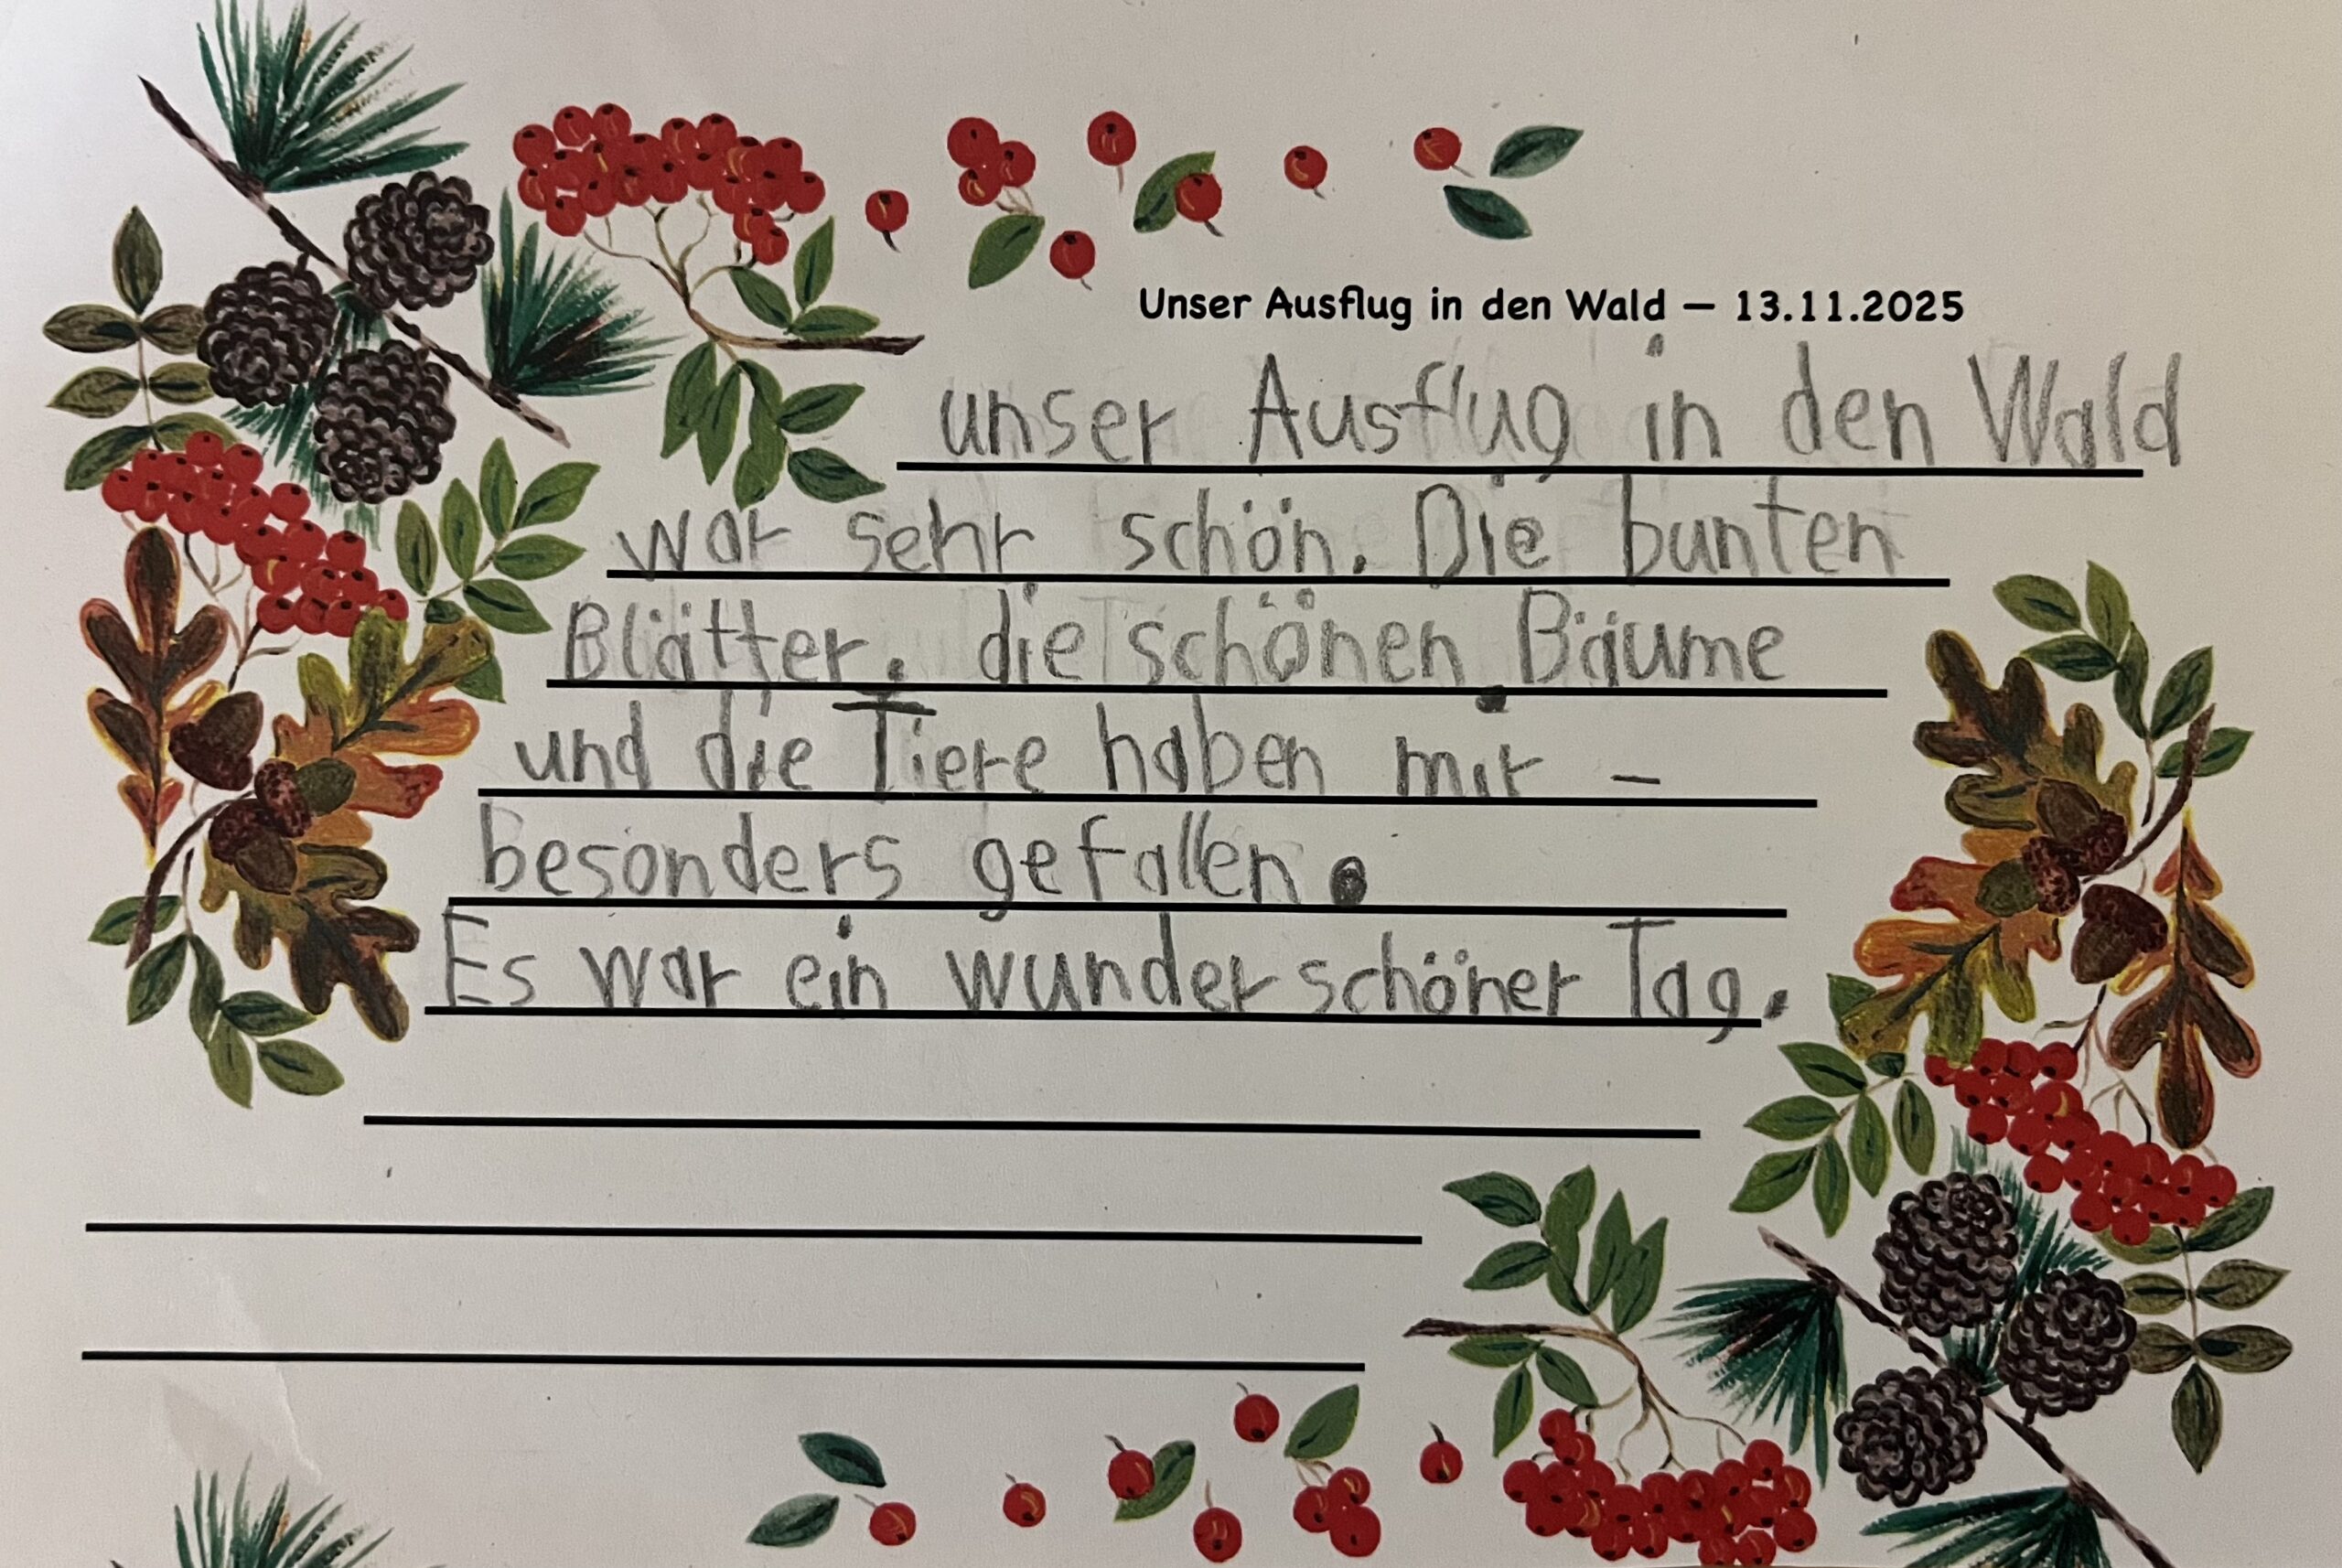 Unser Ausflug in den Wald – 13.11.2025
unser Ausflug in den Wald
war sehr schön. Die bunten
Blätter, die schönen Bäume
und die Tiere haben mir -
besonders gefallen.
Es war ein wunderschöner Tag.